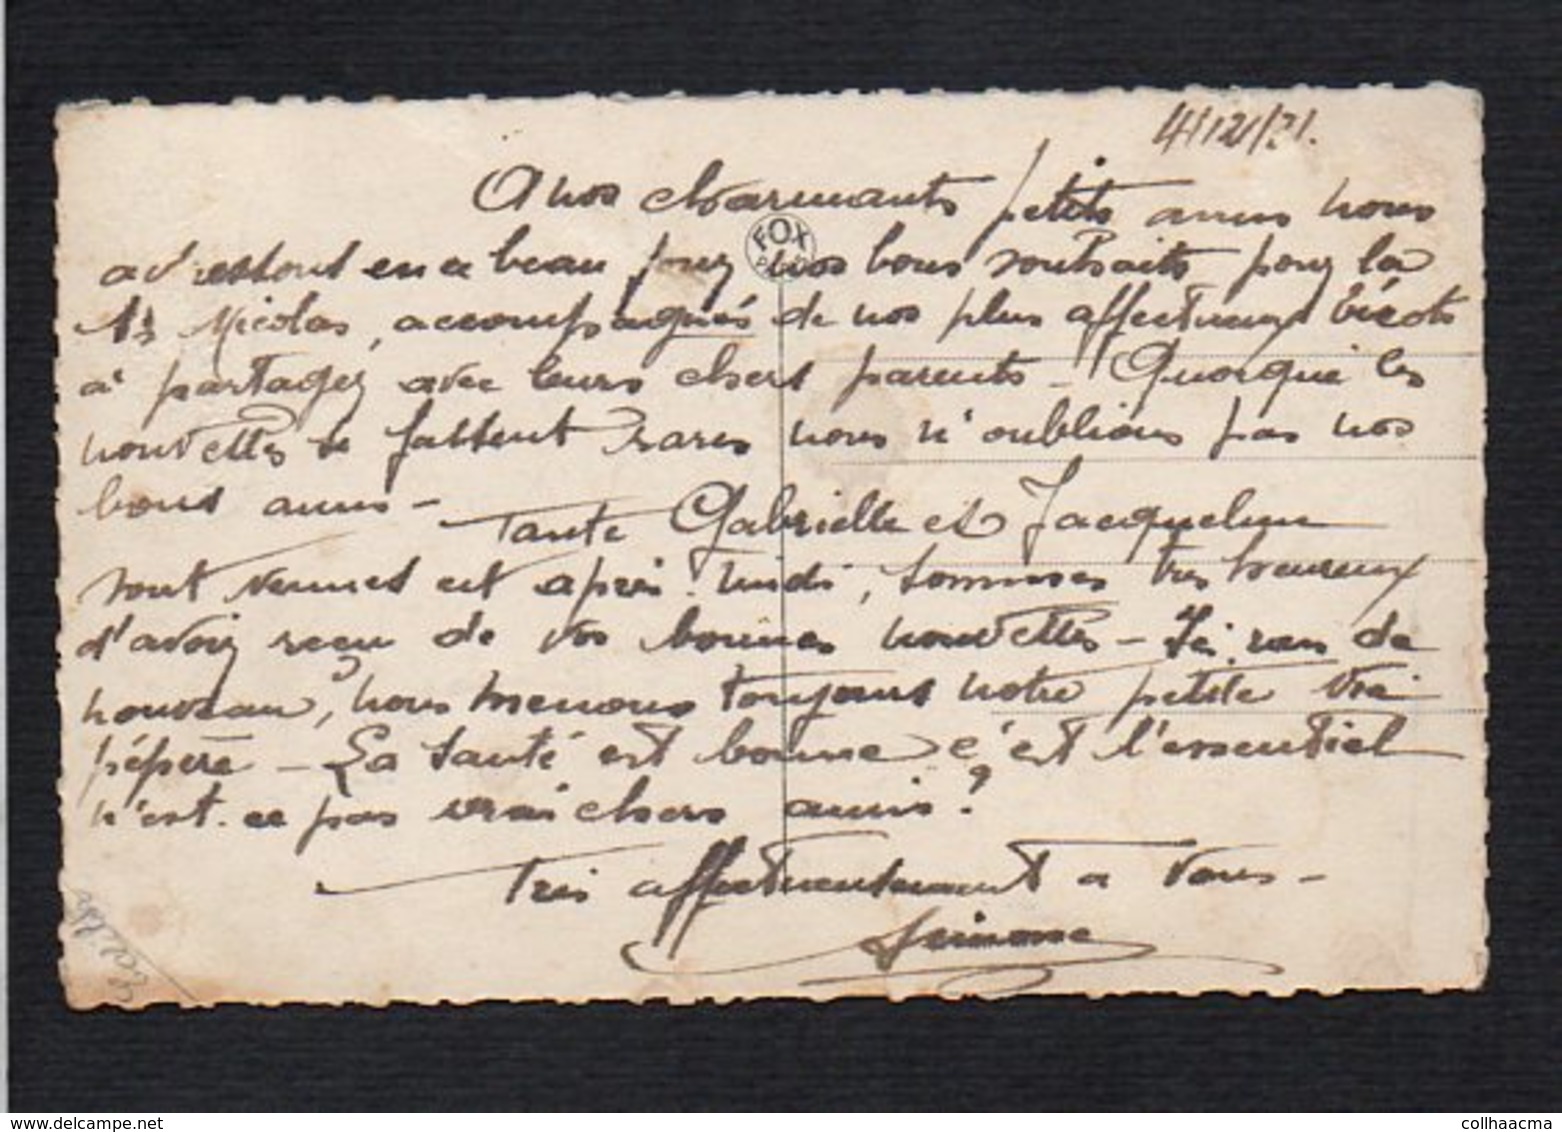 4/12/31.
A nos charmants petits amis nous
adressons en ce beau jour nos bons souhaits pour la
St Nicolas, accompagnés de nos plus affectueux bécots
à partager avec leurs chers parents - Quoique les
nouvelles se fassent rares nous n'oublions pas nos
bons amis -
Tante Gabrielle et Jacqueline
sont venues cet après-midi, sommes très heureux
d'avoir reçu de vos bonnes nouvelles - Ici rien de
nouveau, nous menons toujours notre petite vie
pépère - La santé est bonne c'est l'essentiel
n'est-ce pas vrai chers amis?
Très affectueusement à vous -
Simone
FOX
collhaacma